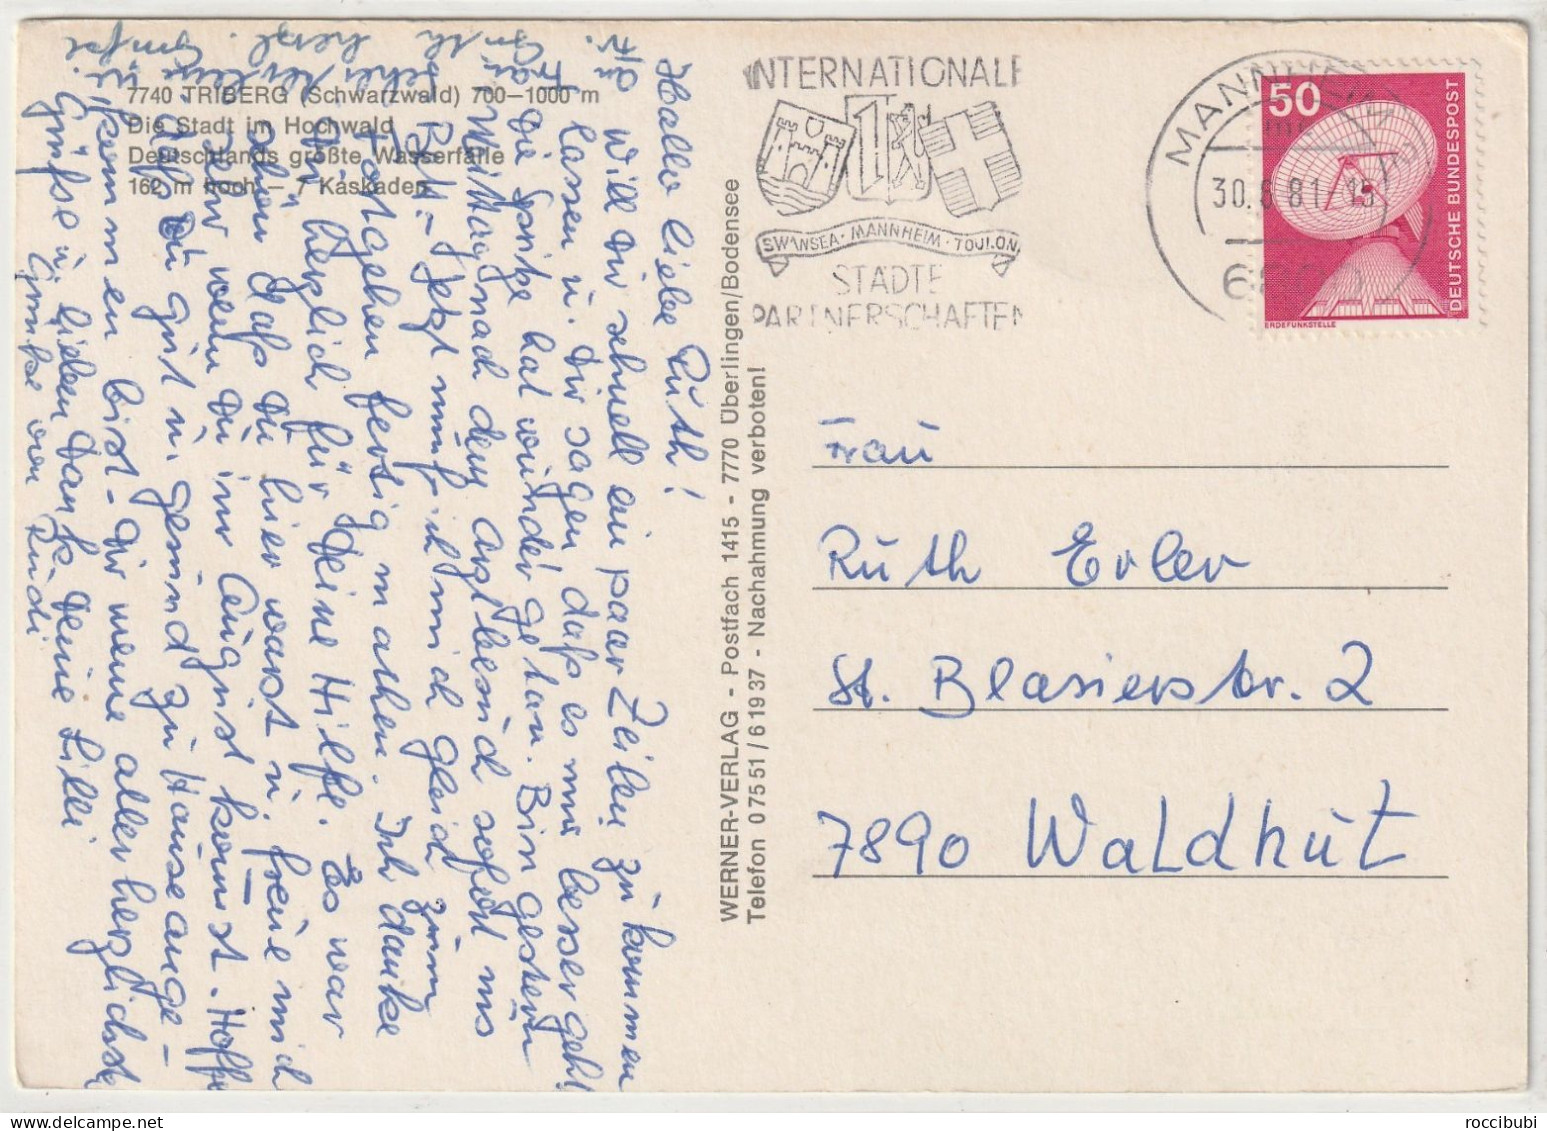 7740 TRIBERG (Schwarzwald) 700–1000 m
Die Stadt im Hochwald
Deutschlands größte Wasserfälle
162 m hoch – 7 Kaskaden
Hallo liebe Ruth!
Will Dir schnell ein paar Zeilen zukommen
lassen u. Dir sagen, daß es mir besser geht.
Die Spritze hat wunder getan. Bin gestern
Mittag nach dem Arztbesuch sofort ins
Bett. Jetzt muß ich mich gleich zum
Fortgehen fertig machen. Ich danke
Dir herzlich für Deine Hilfe. Es war
schön daß Du hier warst u. freue mich
sehr wenn Du im August kommst. Hoffe
daß Du gut u. gesund zu Hause ange-
kommen bist. Dir meine allerherzlichste
Grüße u. lieben Dank Deine Lilli
Grüße von Rudi
WERNER-VERLAG - Postfach 1415 - 7770 Überlingen/Bodensee
Telefon 0 75 51 / 6 19 37 - Nachahmung verboten!
INTERNATIONALE
SWANSEA · MANNHEIM · TOULON
STÄDTE
PARTNERSCHAFTEN
MANNHEIM
30.6.81/-15
50
DEUTSCHE BUNDESPOST
ERDEFUNKSTELLE
Frau
Ruth Erler
St. Blasierstr. 2
7890 Waldhut
roccibubi